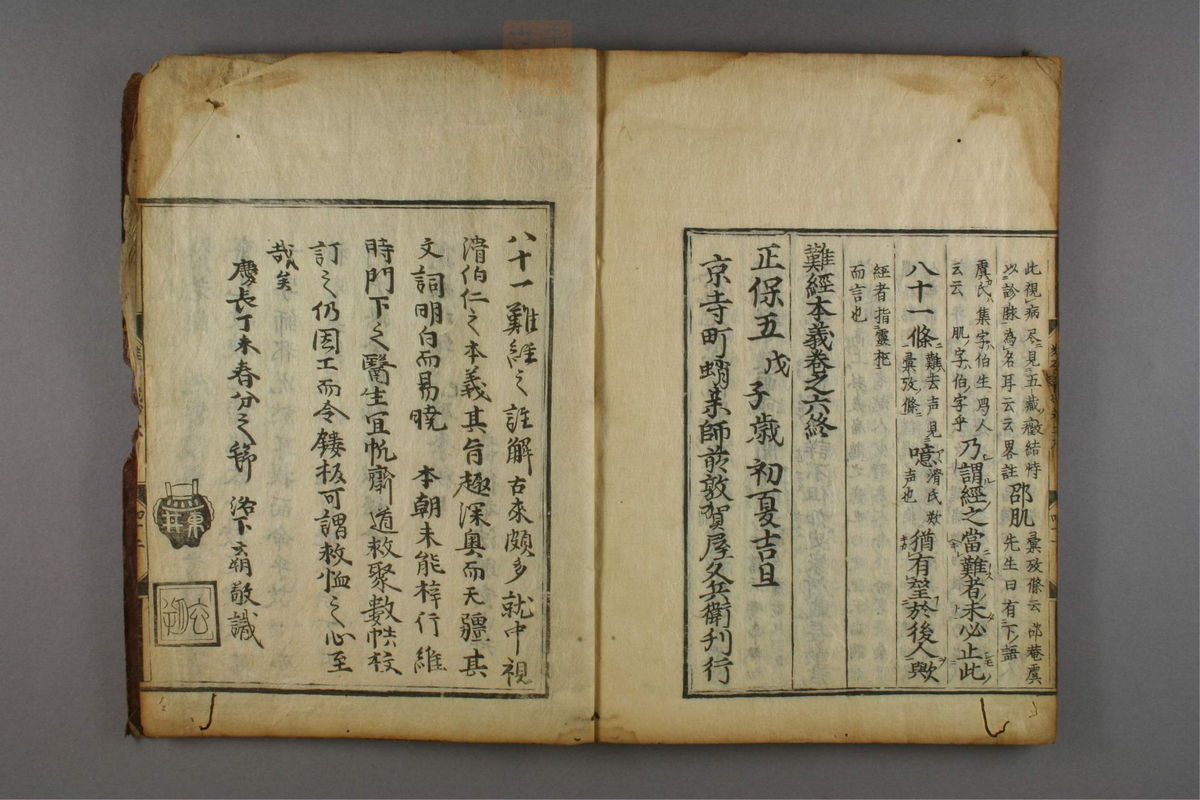 此視病尽見五藏癥結特 邵肌 彙攷條云邵菴虞
以診脉為名耳云云畧註 先生曰有下語
虞氏集字伯生馬人 乃謂經之當難者未必止此
云云 肌字伯字乎
八十一條 難去声見 噫 滑氏 猶有望於後人歟
彙攷條 声也
經者指靈柩
而言也
難經本義卷之六終
正保五戊子歳初夏吉旦
京寺町蛸薬師前敦賀屋久兵衛刊行
八十一難経之註解古來頗多就中視
滑伯仁之本義其旨趣深奥而無疆其
文詞明白而易曉 本朝未能梓行維
時門下之醫生宜帆齋道救聚數帙校
訂之仍因工而令鏤板可謂救恤之心至
哉矣
慶長丁未春分之節 洛下玄朔敬識
東井
玄朔